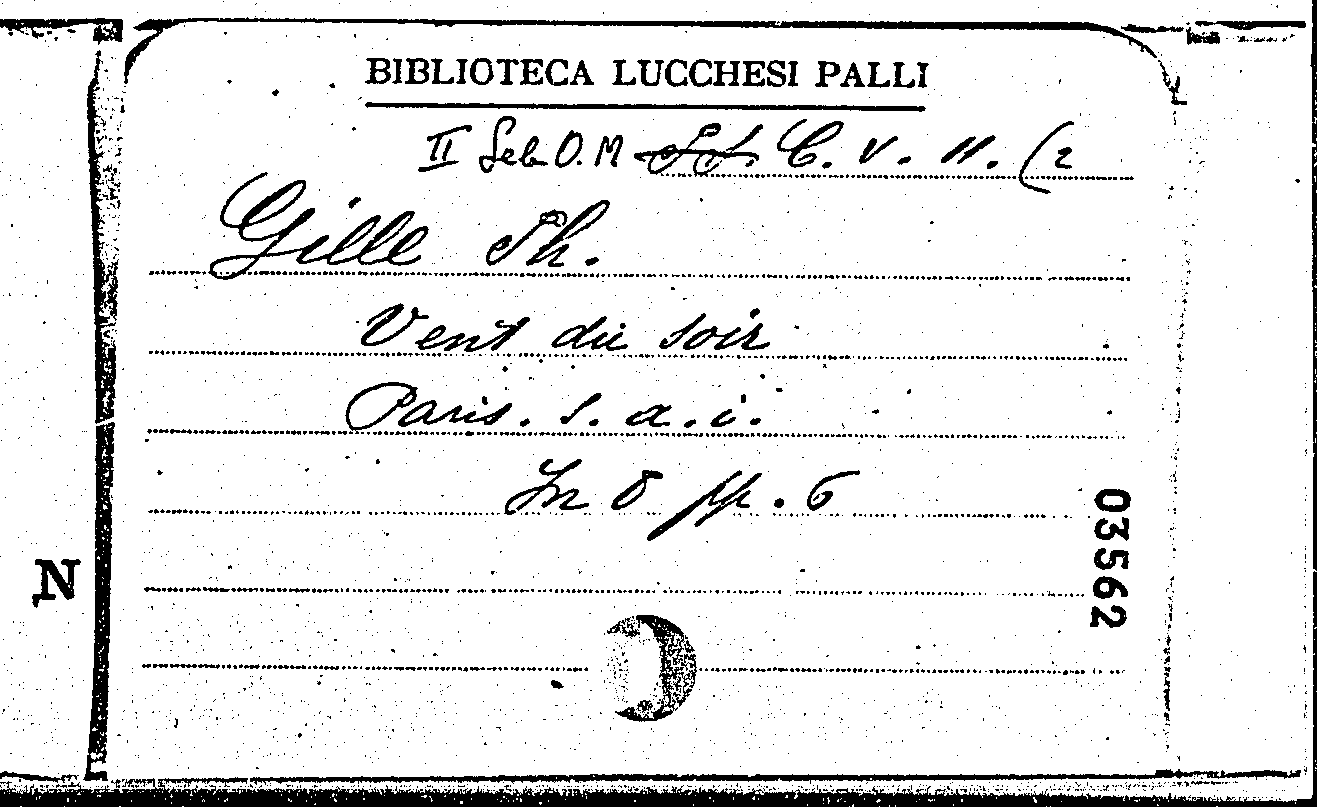 BIBLIOTECA LUCCHESI PALLI
II O.M C. V. 11. (2
Gille Ph.
Vent du soir
Paris. s. a. i.
In 8 pp. 6
03562
N